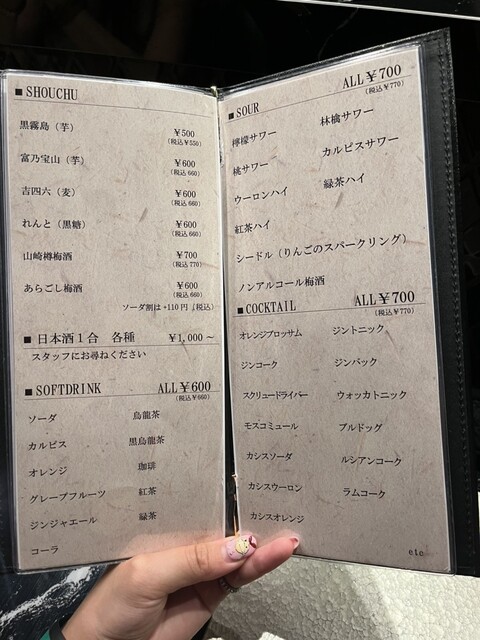 ■ SHOUCHU
黒霧島（芋） ￥500
（税込￥550）
富乃宝山（芋） ￥600
（税込 660）
吉四六（麦） ￥600
（税込 660）
れんと（黒糖） ￥600
（税込 660）
山崎樽梅酒 ￥700
（税込 770）
あらごし梅酒 ￥600
（税込 660）
ソーダ割は+110円（税込）
■ 日本酒１合 各種 ￥1,000～
スタッフにお尋ねください
■ SOFTDRINK ALL￥600
（税込￥660）
ソーダ 烏龍茶
カルピス 黒烏龍茶
オレンジ 珈琲
グレープフルーツ 紅茶
ジンジャエール 緑茶
コーラ
■ SOUR ALL￥700
（税込￥770）
檸檬サワー 林檎サワー
桃サワー カルピスサワー
ウーロンハイ 緑茶ハイ
紅茶ハイ
シードル（りんごのスパークリング）
ノンアルコール梅酒
■COCKTAIL ALL￥700
（税込￥770）
オレンジブロッサム ジントニック
ジンコーク ジンバック
スクリュードライバー ウォッカトニック
モスコミュール ブルドッグ
カシスソーダ ルシアンコーク
カシスウーロン ラムコーク
カシスオレンジ
etc